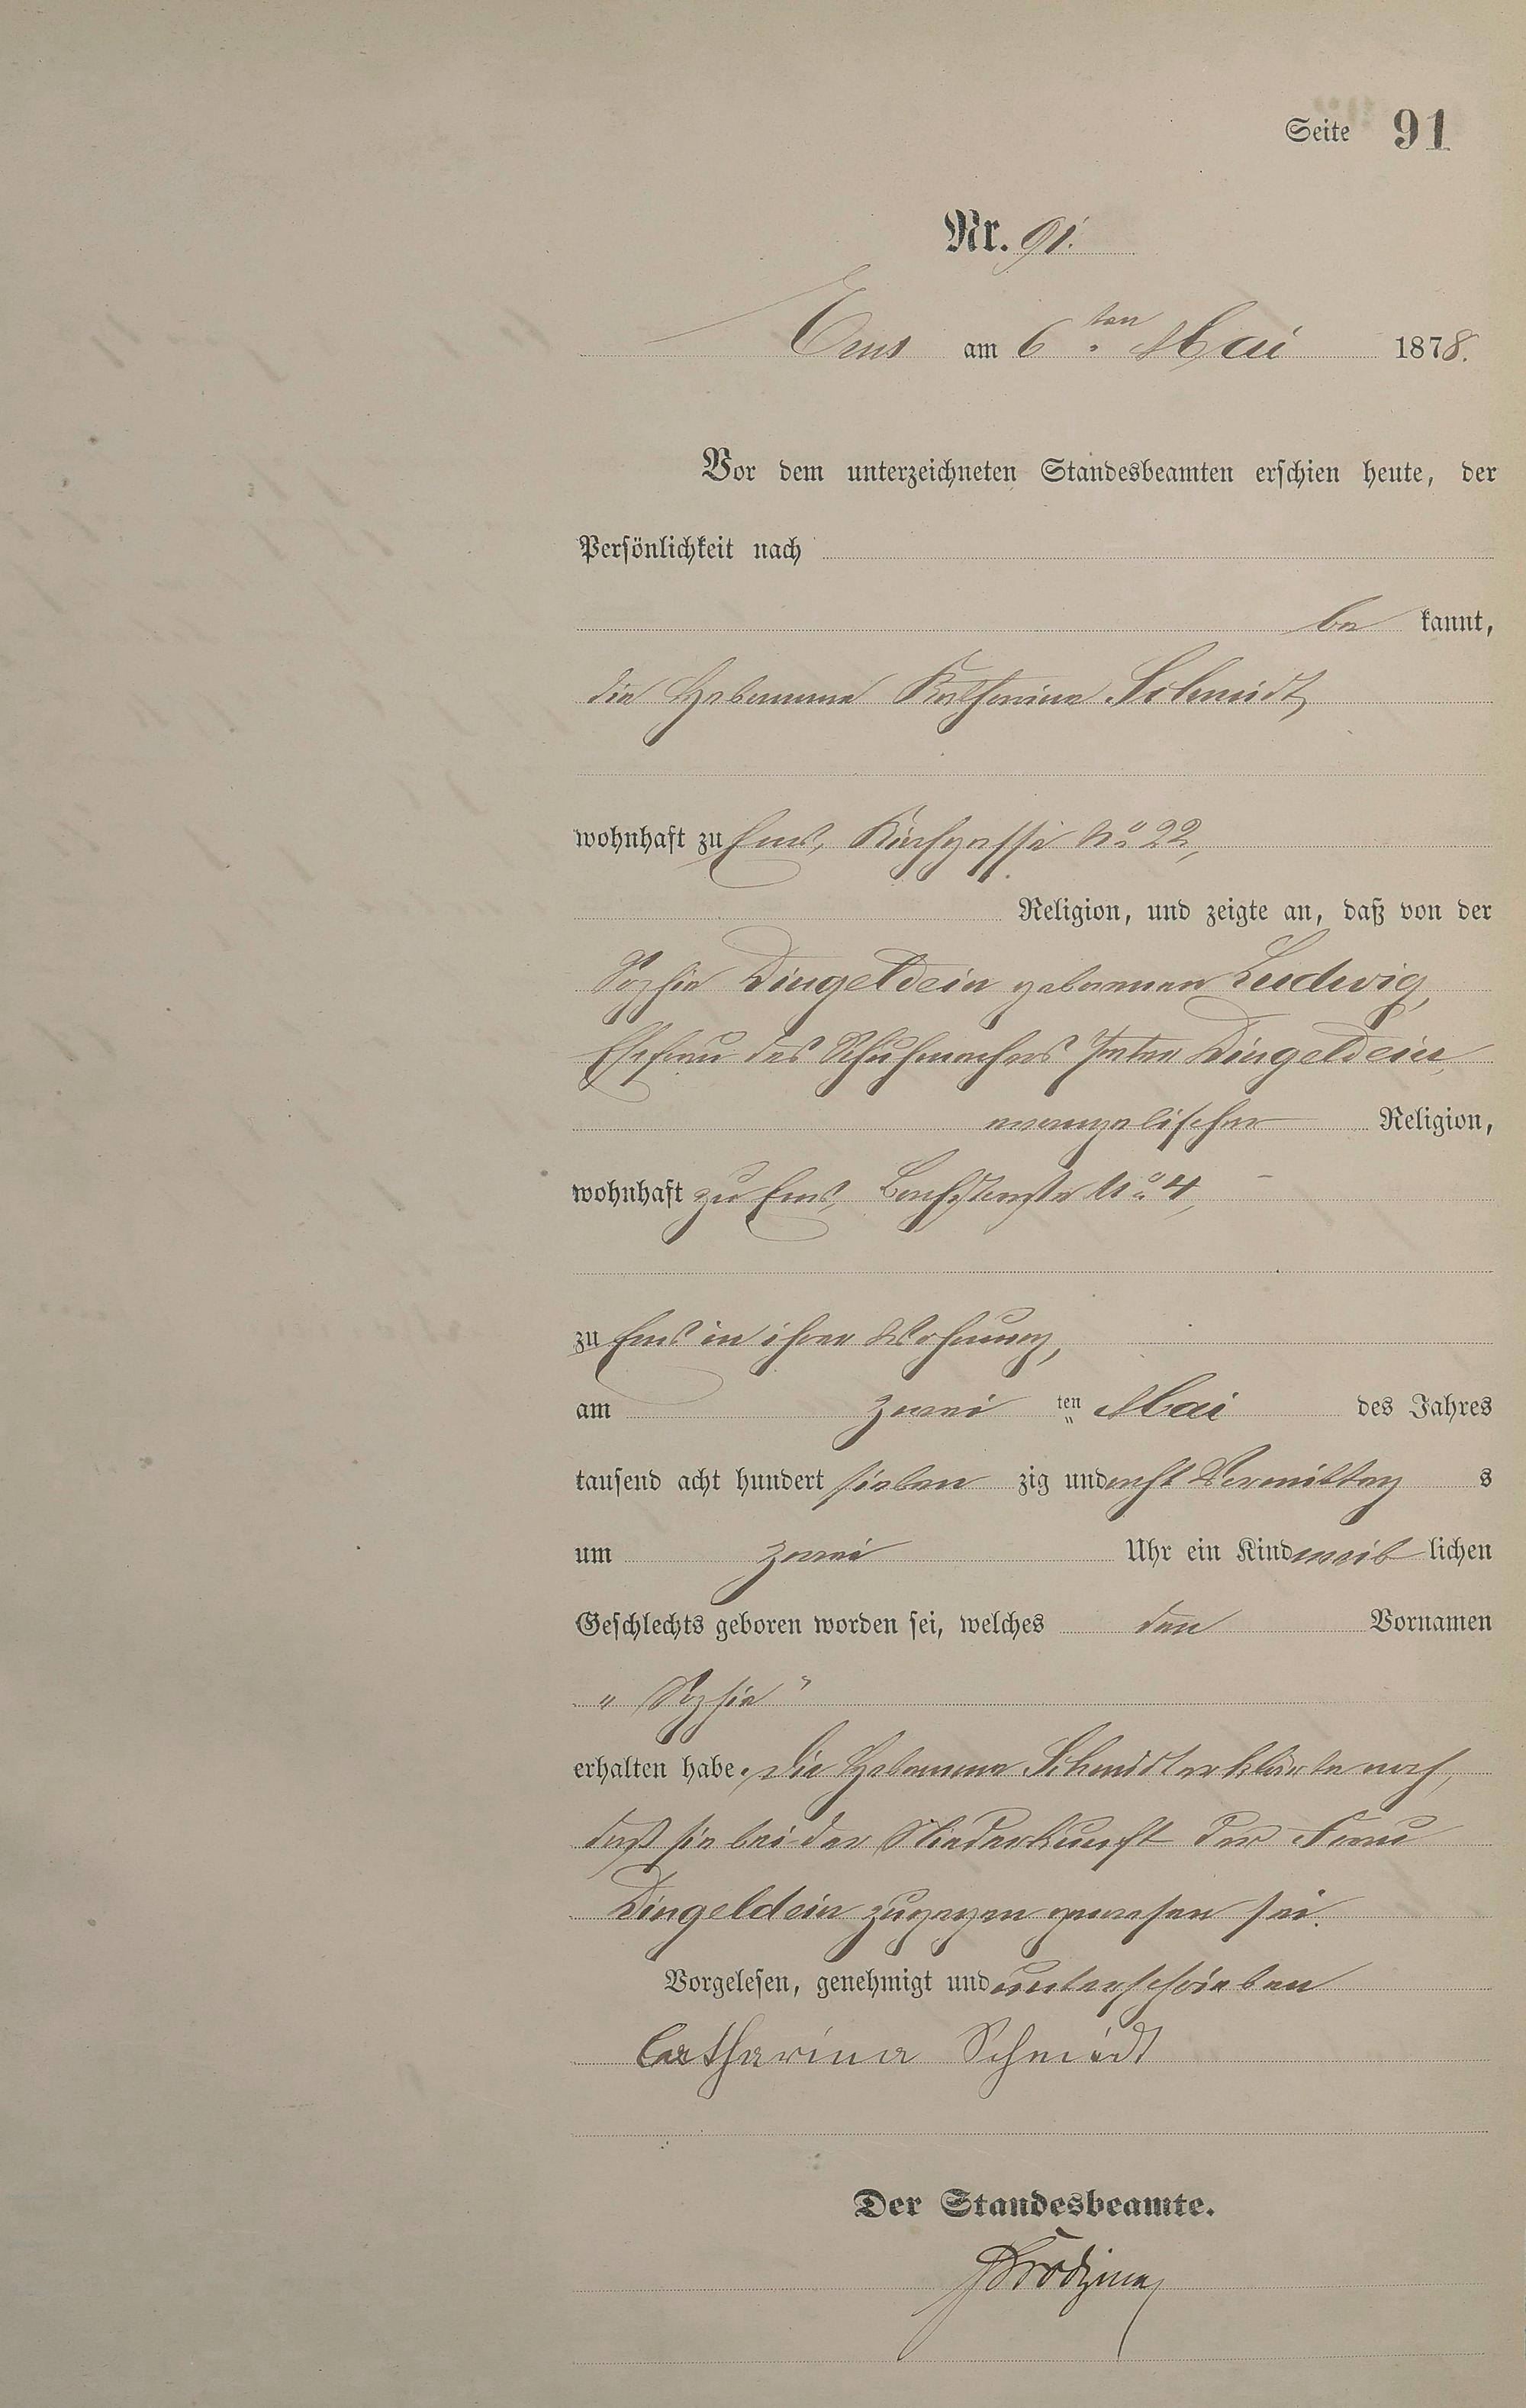 Seite 91
Nr. 91.
Ems am 6ten Mai 1878.
Vor dem unterzeichneten Standesbeamten erschien heute, der
Persönlichkeit nach
be kannt,
die Hebamme Katharina Schmidt,
wohnhaft zu Ems, Kirchgasse No 22,
Religion, und zeigte an, daß von der
Sophie Dingeldein geborenen Ludwig,
Ehefrau des Schuhmachers Peter Dingeldein,
evangelischer Religion,
wohnhaft zu Ems, Bachstraße No 4,
zu Ems in ihrer Wohnung,
am zwei ten Mai des Jahres
tausend acht hundert sieben zig und acht Vormittag s
um zwei Uhr ein Kind weib lichen
Geschlechts geboren worden sei, welches den Vornamen
„Sophie"
erhalten habe. Die Hebamme Schmidt erklärte noch,
daß sie bei der Niederkunft der Frau
Dingeldein zugegen gewesen sei.
Vorgelesen, genehmigt und unterschrieben
Catharina Schmidt
Der Standesbeamte.